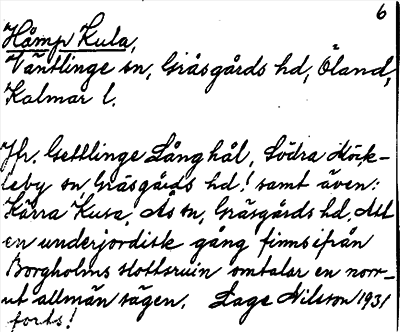 6
Håmp Kula,
Väntlinge sn, Gräsgårds hd, Öland,
Kalmar l.
Jfr. Gettlinge Långhål, Södra Möck-
leby sn Gräsgårds hd! samt även:
Kärra Kusa, Ås sn, Gräsgårds hd, Att
en underjordisk gång finns ifrån
Borgholms slottsruin omtalar en norr-
ut allmän sägen. Lage Nilsson 1931
forts!